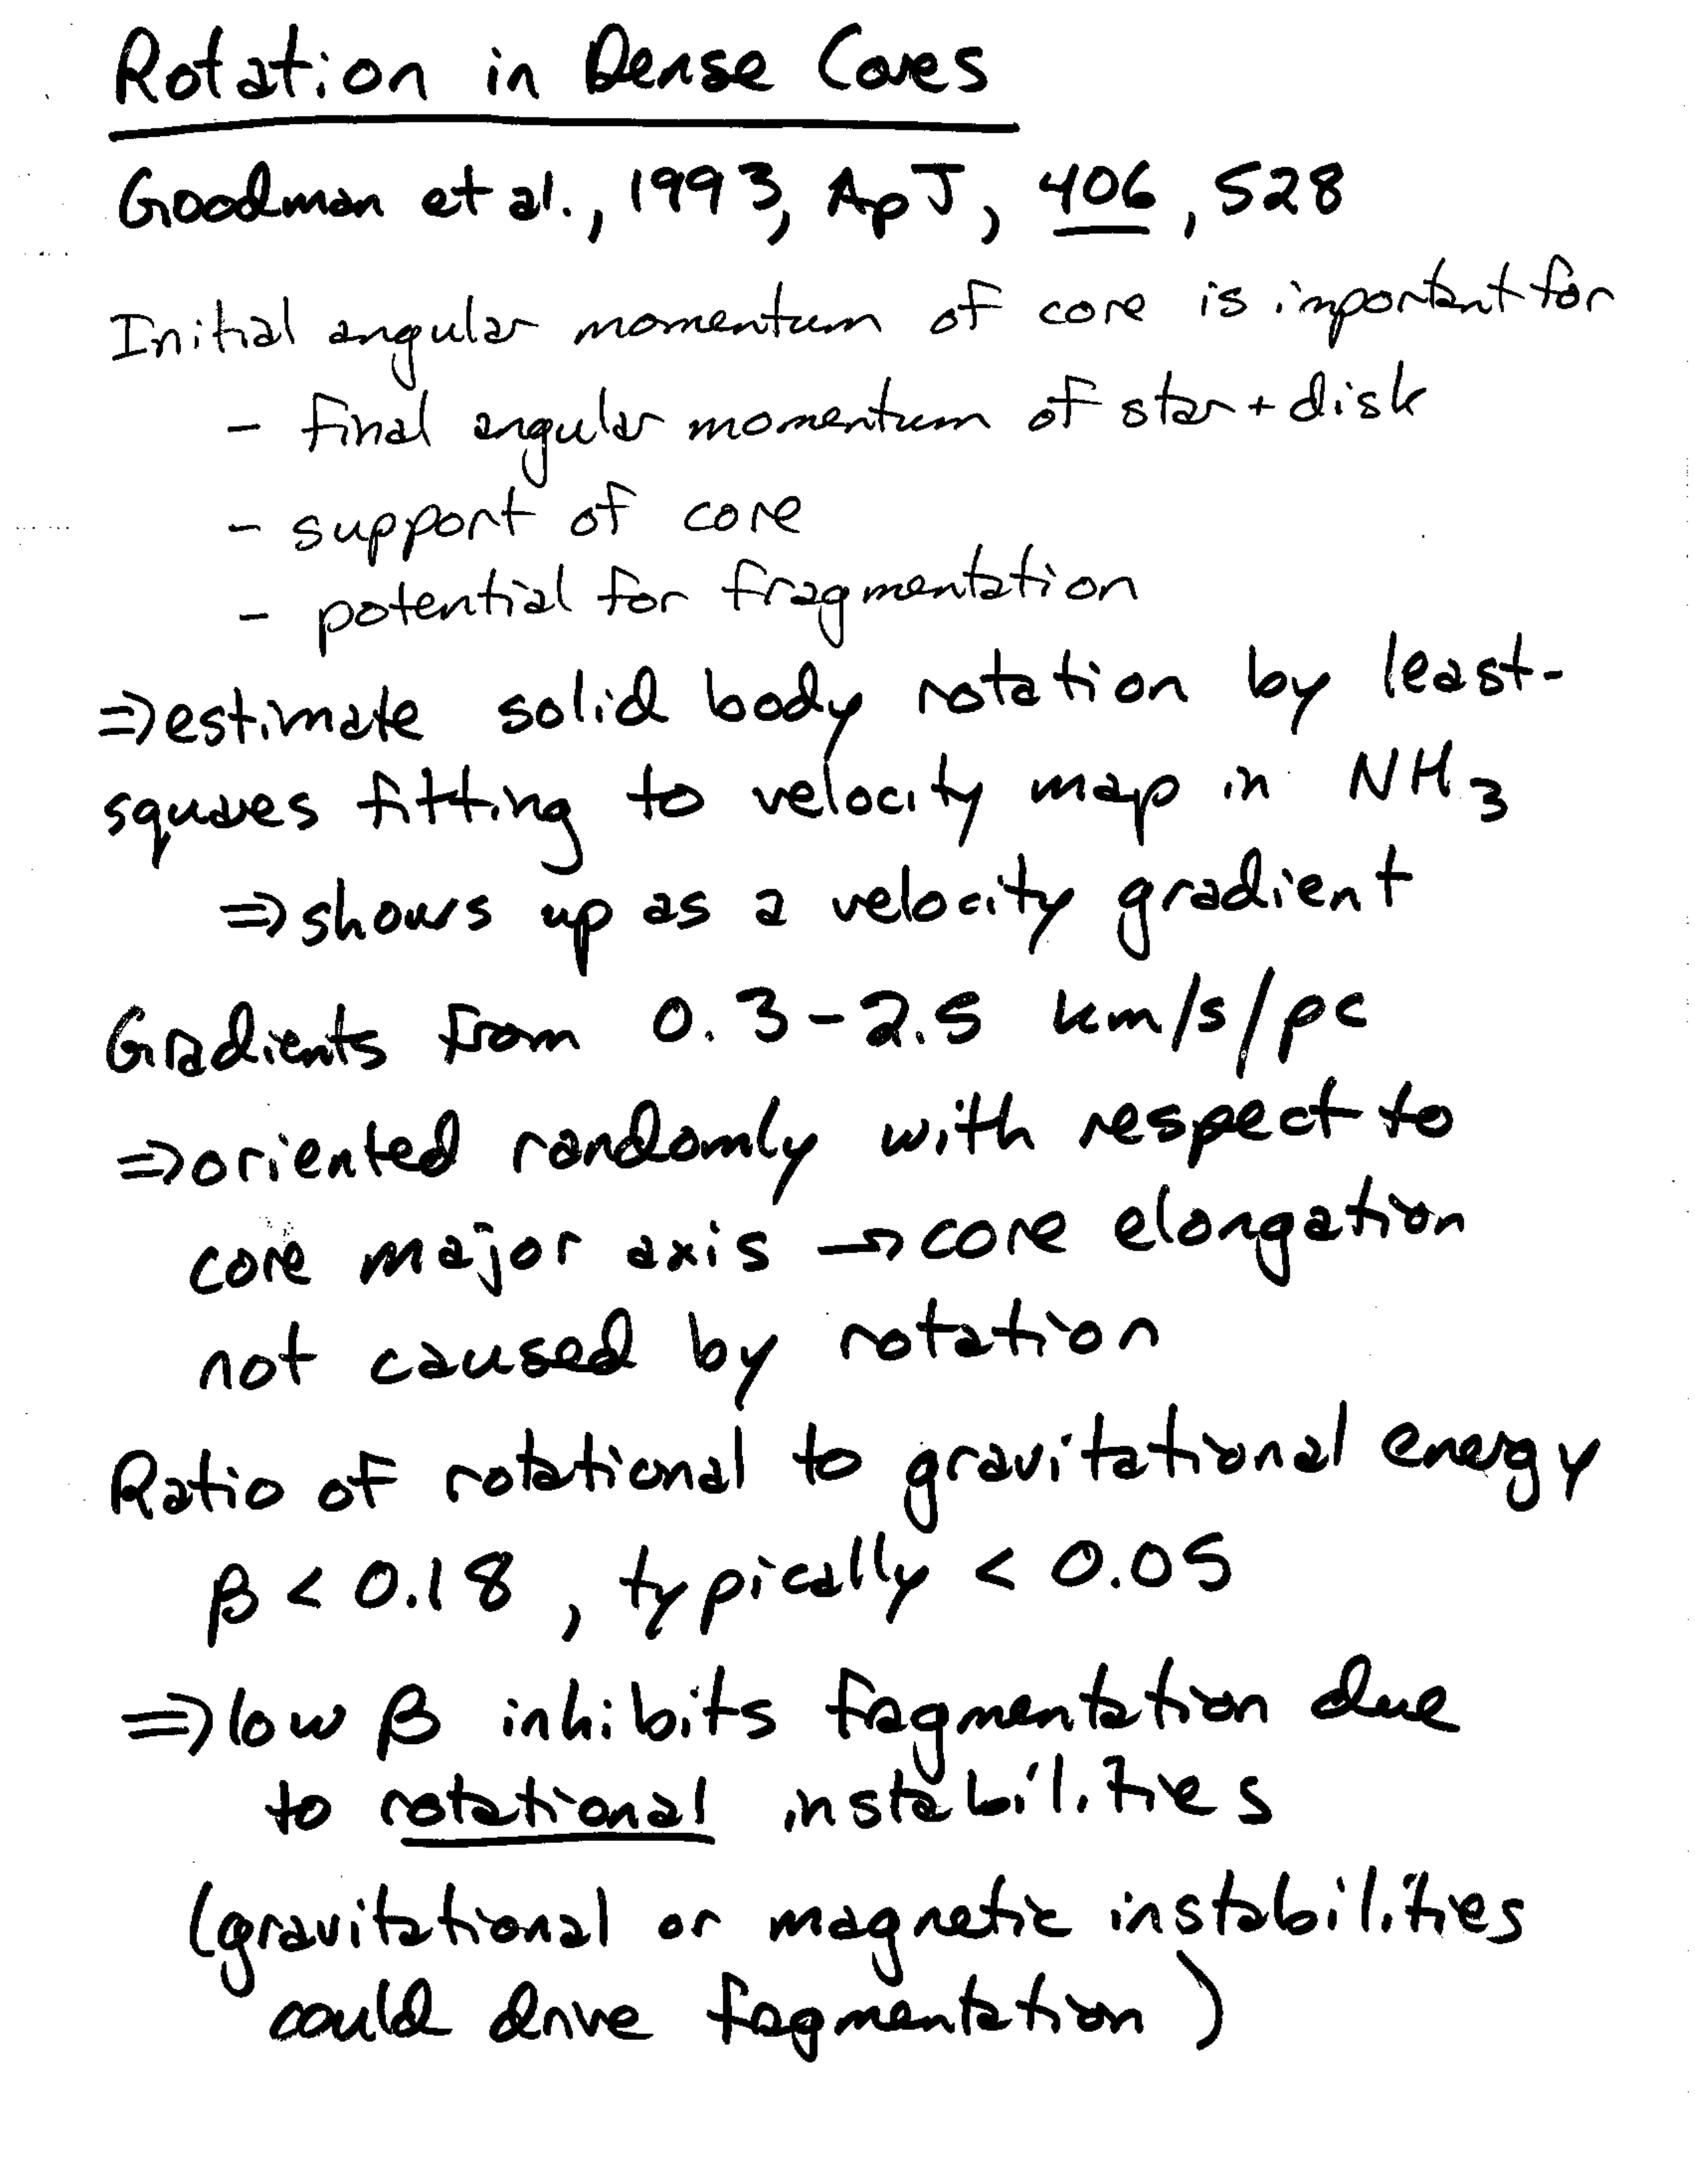 Rotation in Dense Cores
Goodman et al., 1993, ApJ, 406, 528
Initial angular momentum of core is important for
- final angular momentum of star + disk
- support of core
- potential for fragmentation
⇒ estimate solid body rotation by least-
squares fitting to velocity map in NH₃
⇒ shows up as a velocity gradient
Gradients from 0.3-2.5 km/s/pc
⇒ oriented randomly with respect to
core major axis → core elongation
not caused by rotation
Ratio of rotational to gravitational energy
β < 0.18, typically < 0.05
⇒ low β inhibits fragmentation due
to rotational instabilities
(gravitational or magnetic instabilities
could drive fragmentation)